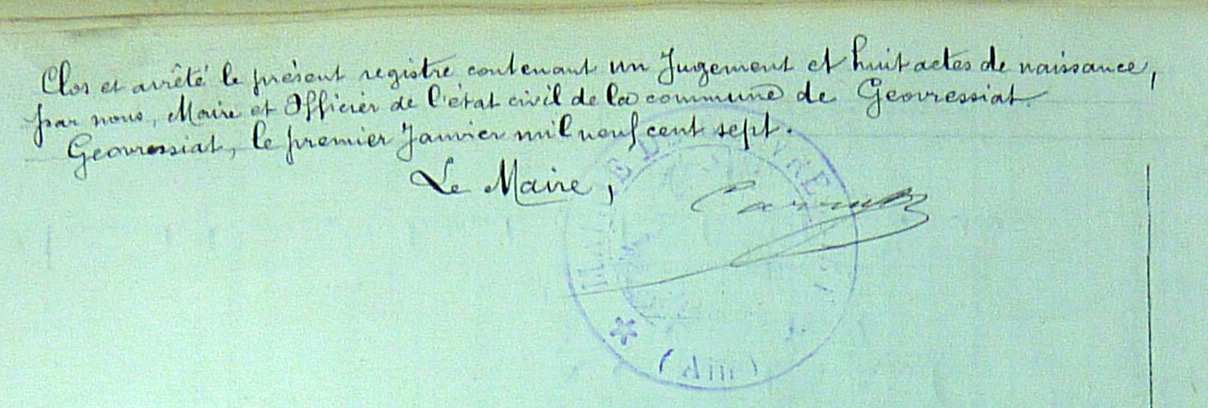 Clos et arrêté le présent registre contenant un Jugement et huit actes de naissance,
par nous, Maire et Officier de l'état civil de la commune de Geovressiat.
Geovressiat, le premier Janvier mil neuf cent sept.
Le Maire,
(Ain)